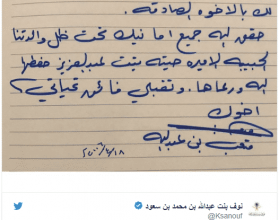 لك بالأخوه الصادقه.
حقق الله جميع امانيك تحت ظل والدتنا
الحبيبه الاميره حصه بنت عبدالعزيز حفظها
الله ورعاها. وتقبلي فائق تحياتي،
اخوك
متعب بن عبدالله
نوف بنت عبدالله بن محمد بن سعود
@Ksanouf